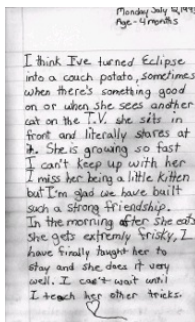 Monday July 12, 199
Age - 4 months
I think I've turned Eclipse
into a couch potato, sometimes
when there's something good
on or when she sees another
cat on the T.V. she sits in
front and literally stares at
it. She is growing so fast
I can't keep up with her
I miss her being a little kitten
but I'm glad we have built
such a strong friendship.
In the morning after she eats
she gets extremly frisky, I
have finally taught her to
stay and she does it very
well. I can't wait until
I teach her other tricks.